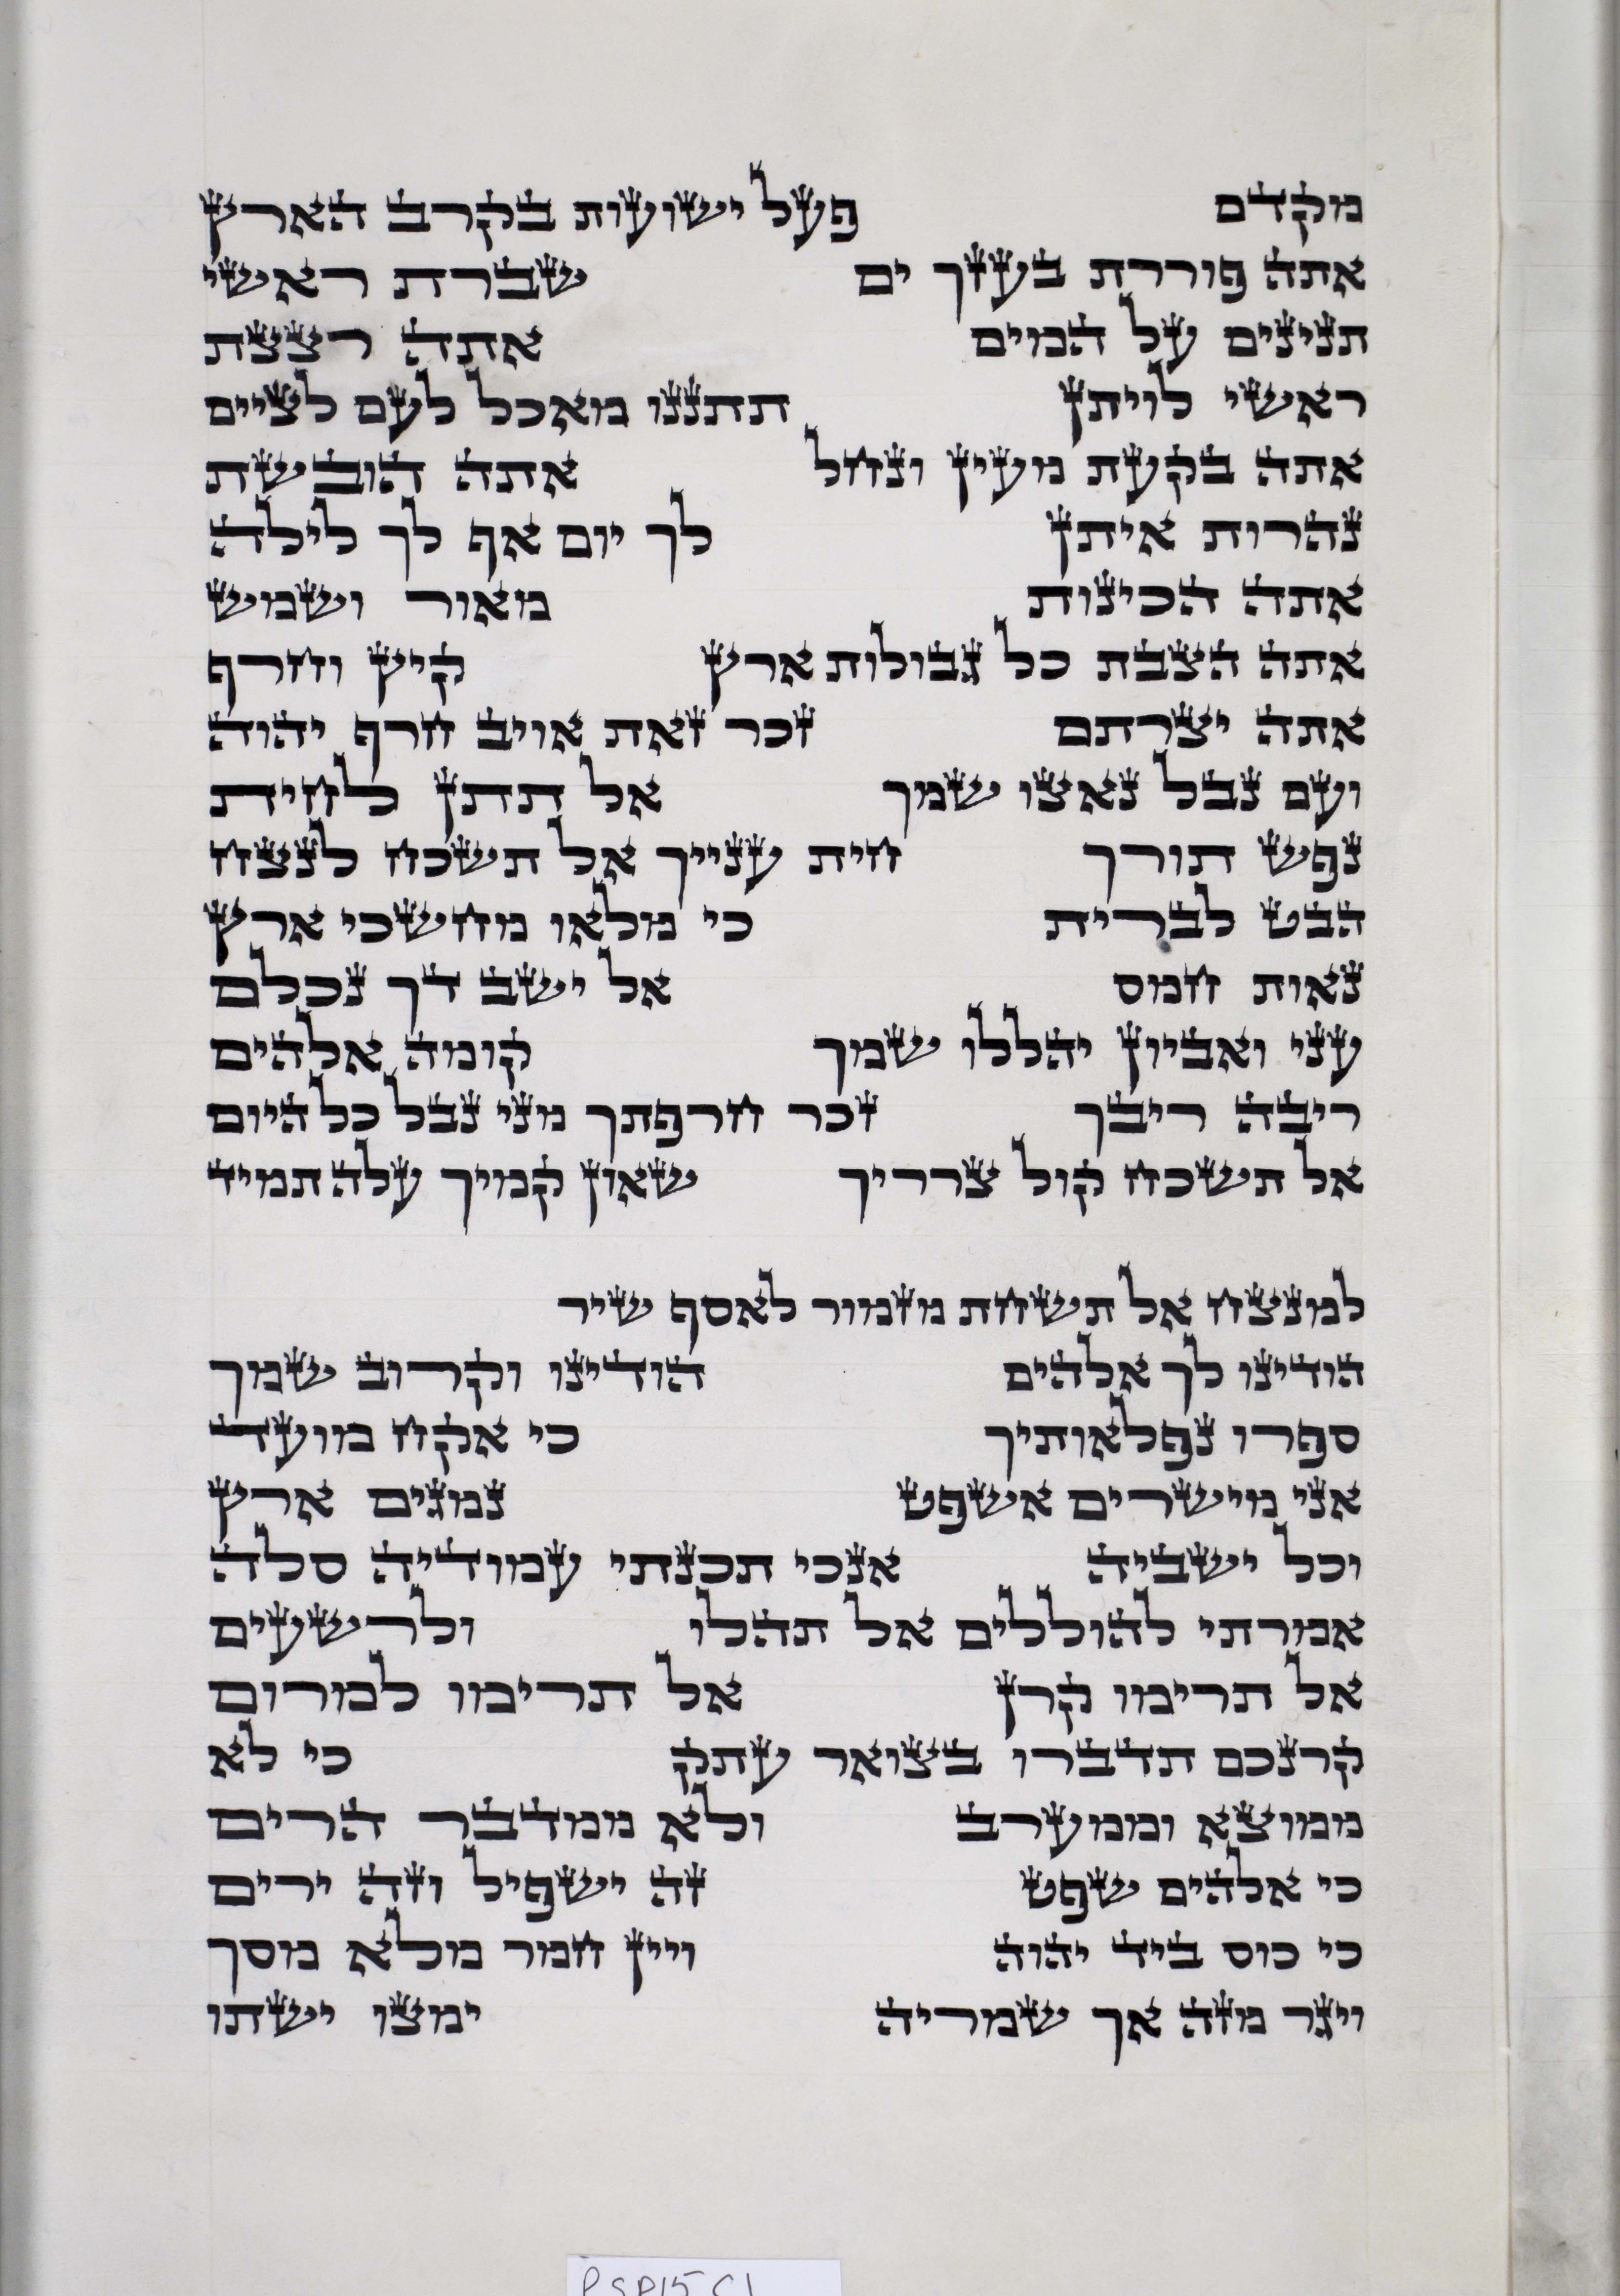 מקדם פעל ישועות בקרב הארץ
אתה פוררת בעזך ים שברת ראשי
תנינים על המים אתה רצצת
ראשי לויתן תתננו מאכל לעם לציים
אתה בקעת מעין ונחל אתה הובשת
נהרות איתן לך יום אף לך לילה
אתה הכינות מאור ושמש
אתה הצבת כל גבולות ארץ קיץ וחרף
אתה יצרתם זכר זאת אויב חרף יהוה
ועם נבל נאצו שמך אל תתן לחית
נפש תורך חית ענייך אל תשכח לנצח
הבט לברית כי מלאו מחשכי ארץ
נאות חמס אל ישב דך נכלם
עני ואביון יהללו שמך קומה אלהים
ריבה ריבך זכר חרפתך מני נבל כל היום
אל תשכח קול צרריך שאון קמיך עלה תמיד
למנצח אל תשחת מזמור לאסף שיר
הודינו לך אלהים הודינו וקרוב שמך
ספרו נפלאותיך כי אקח מועד
אני מישרים אשפט נמגים ארץ
וכל ישביה אנכי תכנתי עמודיה סלה
אמרתי להוללים אל תהלו ולרשעים
אל תרימו קרן אל תרימו למרום
קרנכם תדברו בצואר עתק כי לא
ממוצא וממערב ולא ממדבר הרים
כי אלהים שפט זה ישפיל וזה ירים
כי כוס ביד יהוה ויין חמר מלא מסך
ויגר מזה אך שמריה ימצו ישתו
PSP15 C1